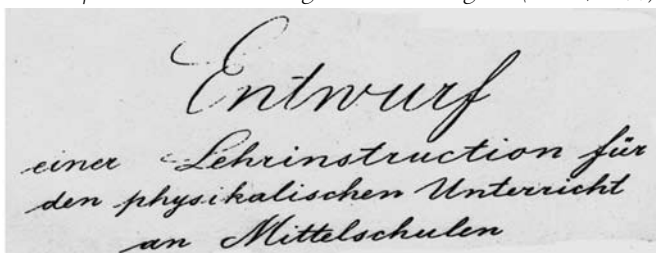 Entwurf
einer Lehrinstruction für
den physikalischen Unterricht
an Mittelschulen